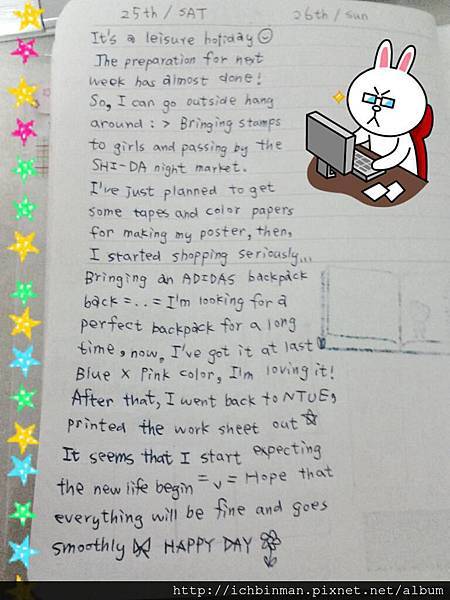 25th / SAT
26th / sun
It's a leisure holiday ☺
The preparation for next
week has almost done!
So, I can go outside hang
around : > Bringing stamps
to girls and passing by the
SHI-DA night market.
I've just planned to get
some tapes and color papers
for making my poster, then,
I started shopping seriously...
Bringing an ADIDAS backpack
back = . . = I'm looking for a
perfect backpack for a long
time, now, I've got it at last
Blue x Pink color, I'm loving it!
After that, I went back to NTUE,
printed the work sheet out ☆
It seems that I start expecting
the new life begin = v = Hope that
everything will be fine and goes
smoothly HAPPY DAY
http://ichbinman.pixnet.net/album